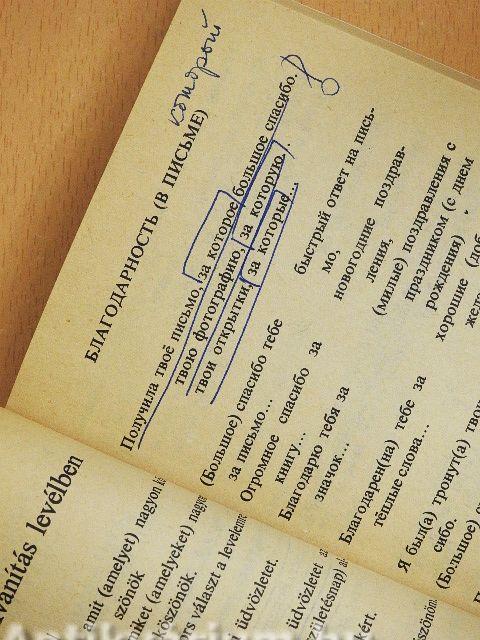 который
БЛАГОДАРНОСТЬ (В ПИСЬМЕ)
Получила твоё письмо, за которое большое спасибо.
твою фотографию, за которую...
твои открытки, за которые...
(Большое) спасибо тебе
за письмо...
Огромное спасибо за
книгу...
Благодарю тебя за
значок...
Благодарен(на) тебе за
тёплые слова...
Я был(а) тронут(а)
сибо.
(Большое)
быстрый ответ на пись-
мо,
новогодние поздрав-
ления,
(милые) поздравления с
праздником (с днем
рождения)
хорошие
levélben
(amelyet) nagyon
szönök
(amelyeket)
köszönök.
választ a
üdvözletet.
üdvözletet